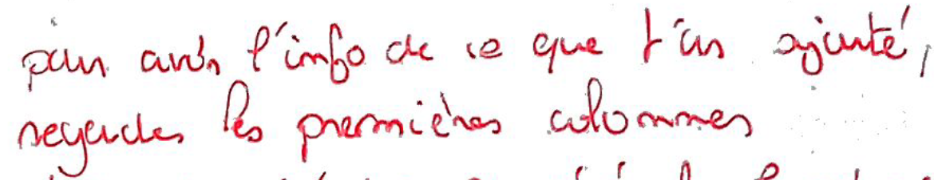 pour avoir l'info de ce que t'as ajouté,
regarder les premières colonnes